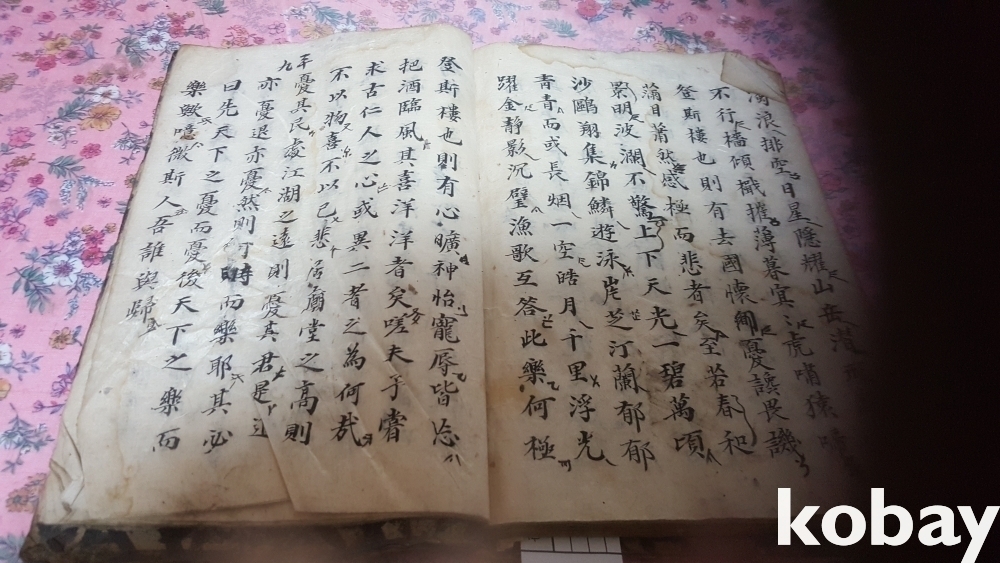 浪排空日星隱耀山岳潛
不行檣傾檝摧薄暮冥〻虎嘯猿啼
登斯樓也則有去國懷鄕憂讒畏譏
滿目蕭然感極而悲者矣至若春和
景明波瀾不驚上下天光一碧萬頃
沙鷗翔集錦鱗遊泳岸芝汀蘭郁郁
青青而或長烟一空皓月千里浮光
躍金靜影沉璧漁歌互答此樂何極
登斯樓也則有心曠神怡寵辱皆忘
把酒臨風其喜洋洋者矣嗟夫予嘗
求古仁人之心或異二者之為何哉
不以物喜不以已悲居廟堂之高則
憂其民處江湖之遠則憂其君是進
亦憂退亦憂然則何時而樂耶其必
曰先天下之憂而憂後天下之樂而
樂歟噫微斯人吾誰與歸
kobay